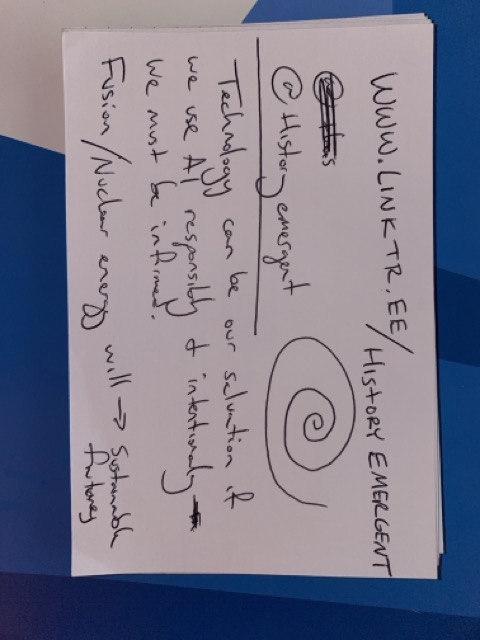 WWW.LINKTR.EE/HISTORY EMERGENT
@History emergent
Technology can be our salvation if
we use AI responsibly & intentionaly
we must be informed.
Fusion/Nuclear energy will → Sustainable